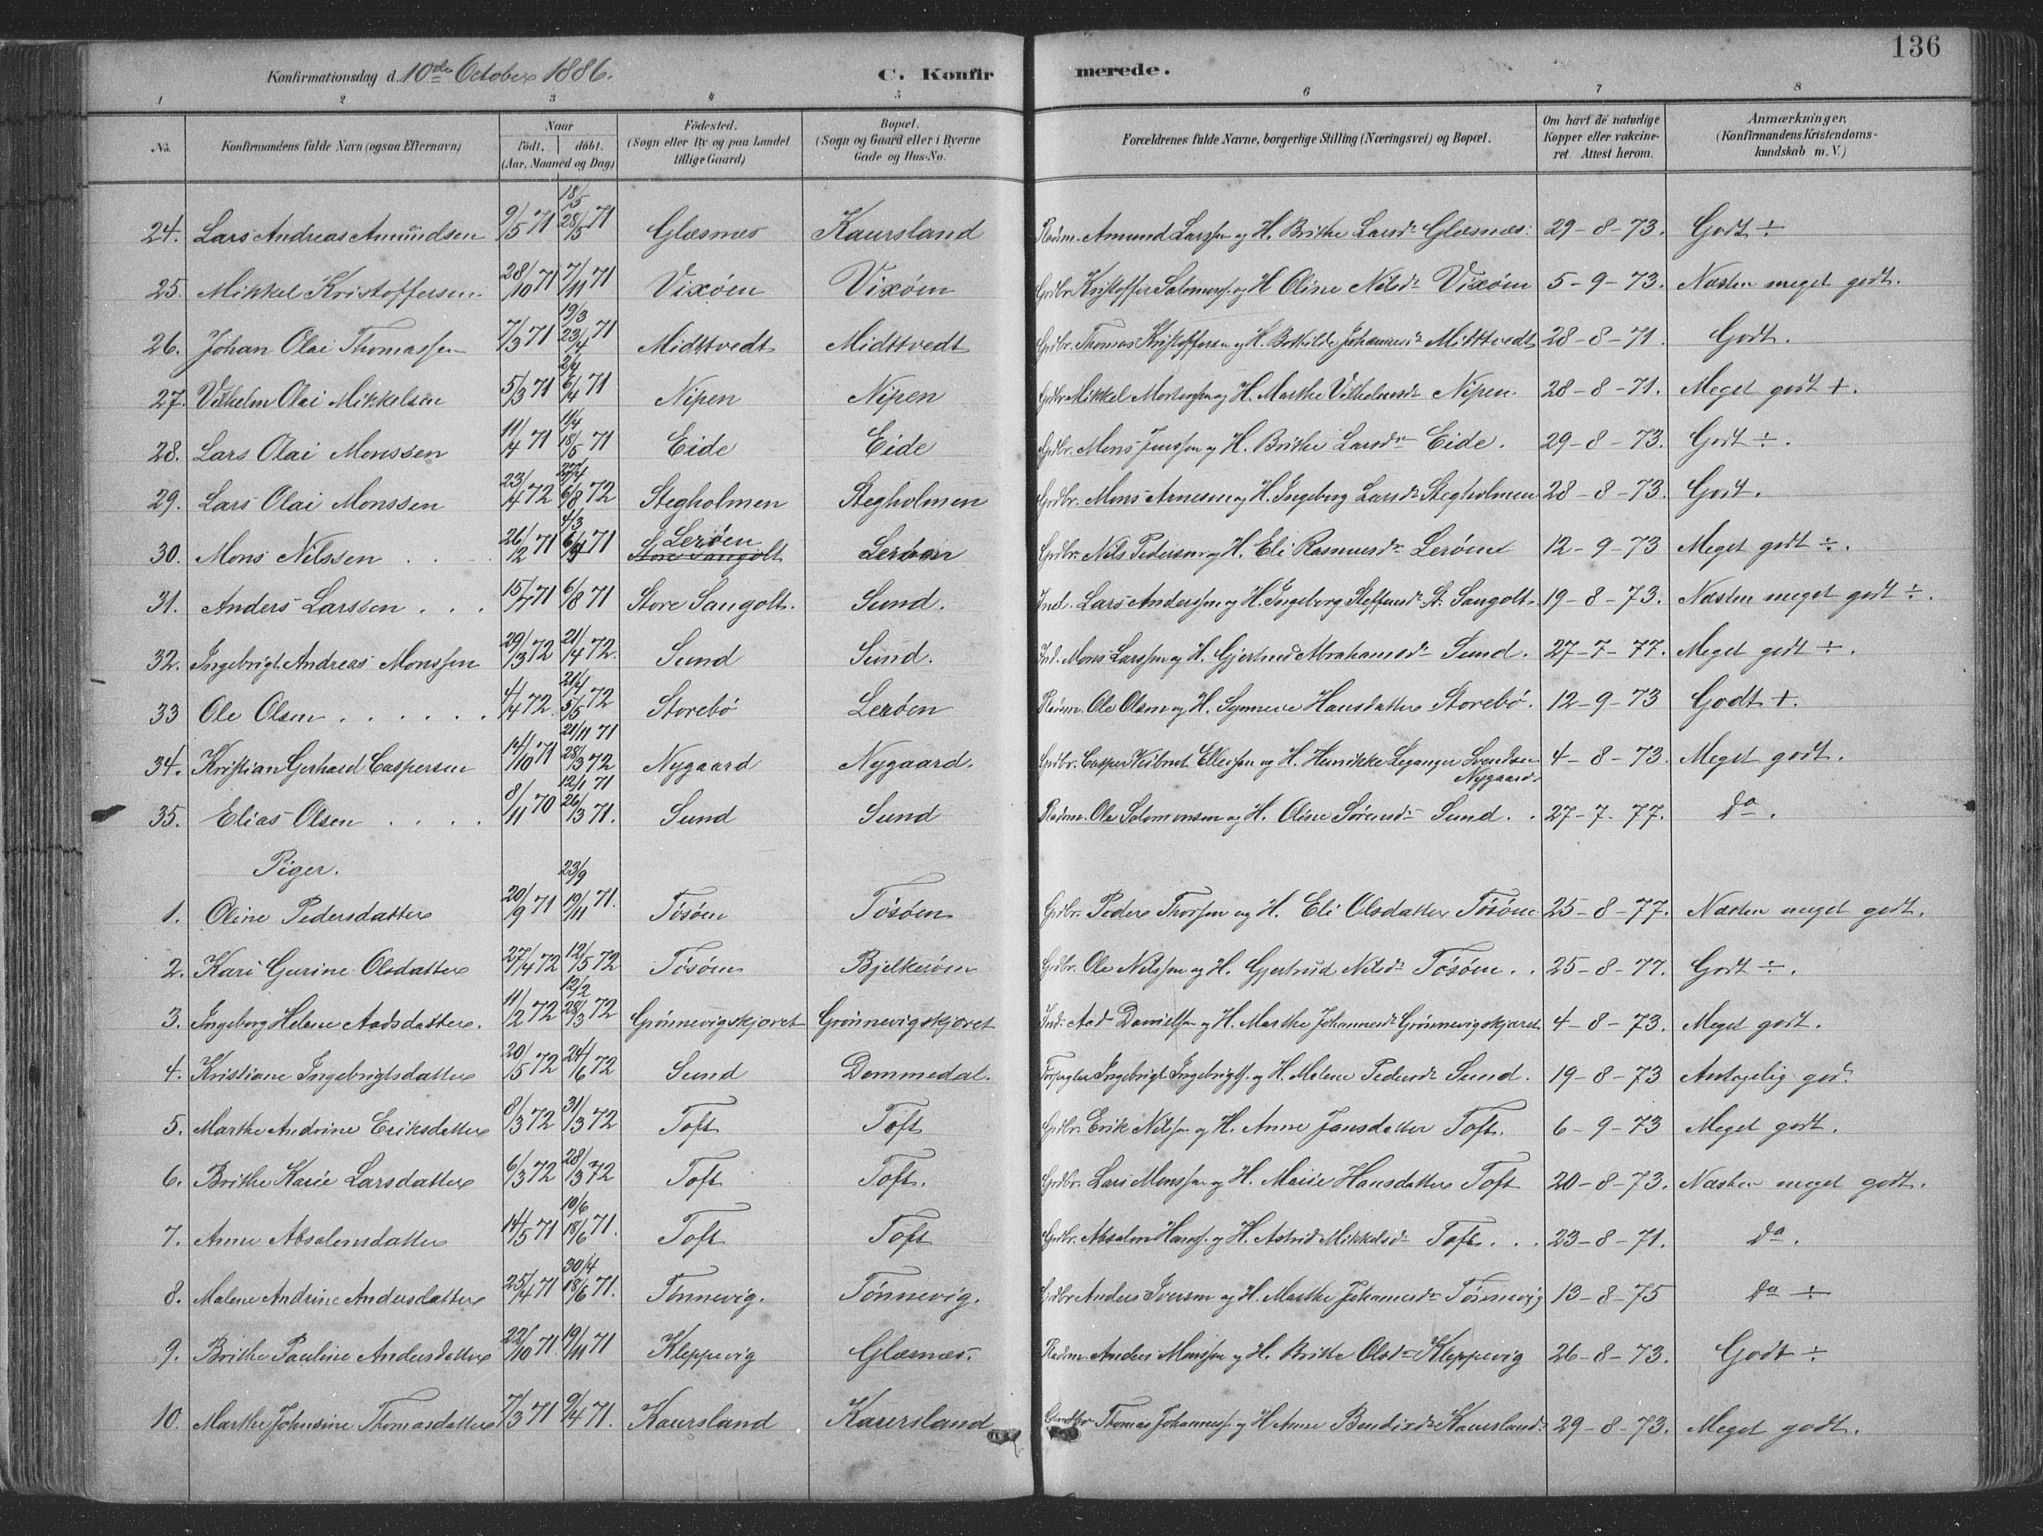 136
Konfirmationsdag d. 10de October 1886.
C. Konfirmerede.
1 2 3 4 5 6 7 8
No. Konfirmandens fulde Navn (ogsaa Efternavn) Naar født, døbt. (Aar, Maaned og Dag) Fødested. (Sogn eller By og paa Landet tillige Gaard) Bopæl. (Sogn og Gaard eller i Byerne Gade og Hus-No. Forældrenes fulde Navne, borgerlige Stilling (Næringsvei) og Bopæl. Om havt de naturlige Kopper eller vakcineret. Attest herom. Anmærkninger, (Konfirmandens Kristendomskundskab m. V.)
24. Lars Andreas Amundsen 9/5 71 18/5 28/5 71 Glæsnes Kaursland Amund Larssen og H. Brithe Larsdr Glæsnes. 29-8-73. Godt ÷
25. Mikkel Kristoffersen 28/10 71 7/11 71 Vixøen Vixøen Grdbr. Kristoffer Salomonss. og H. Oline Nilsdr Vixøen 5-9-73. Næsten meget godt.
26. Johan Olai Thomassen 7/3 71 19/3 23/4 71 Midttvedt Midttvedt Grdbr. Thomas Kristoffersen og H. Bothilde Johannesdr Midttvedt 28-8-71. Godt.
27. Vilhelm Olai Mikkelsen 5/3 71 2/4 6/4 71 Nipen Nipen Grdbr. Mikkel Mortensen og H. Marthe Vilhelmsdr Nipen. 28-8-71. Meget godt +.
28. Lars Olai Monssen 11/4 71 11/4 18/5 71 Eide Eide Grdbr. Mons Jenssen og H. Brithe Larsdr Eide. 29-8-73. Godt ÷.
29. Lars Olai Monssen 23/4 72 27/4 6/8 72 Stegholmen Stegholmen Grdbr. Mons Arnesen og H. Ingeborg Larsdr Stegholmen 28-8-73. Godt.
30. Mons Nilssen 26/2 71 4/3 71 Lerøen Store Sangolt Lerøen Grdbr. Nils Pedersen og H. Eli Rasmusdr Lerøen 12-9-73 Meget godt ÷.
31. Anders Larssen 15/7 71 6/8 71 Store Sangolt. Sund. Ind. Lars Anderssen og H. Ingeborg Steffensdr St. Sangolt. 19-8-73. Næsten meget godt ÷.
32. Ingebrigt Andreas Monssen 29/3 72 21/4 72. Sund Sund. Ind. Mons Larssen og H. Gjertrud Abrahamsdr Sund. 27-7-77. Meget godt ÷.
33 Ole Olsen 4/4 72. 21/4 5/5 72 Storebø Lerøen Ole Olsen og H. Synneve Hansdatter Storebø. 12-9-73 Godt +.
34. Kristian Gerhard Caspersen 14/10 71 21/11 71 28/3 72 Nygaard Nygaard. Grdbr. Casper Ellessen og H. Henrikke Leganger Svendsen Nygaard. 4-8-73. Meget godt.
35. Elias Olsen 8/11 70 12/1 71 26/3 71. Sund Sund Ole Salomonsen og H. Oline Sørensdr Sund. 27-7-77. Do.
Piger.
1. Oline Pedersdatter 20/9 71 23/9 19/11 71. Tøsøen Tøsøen Grdbr. Peder Thorssen og H. Eli Olsdatter Tøsøen 25-8-77. Næsten meget godt.
2. Kari Gurine Olsdatter 27/4 72 12/5 72 Tøsøen Bjelkerøen Grdbr. Ole Nilssen og H. Gjertrud Nilsdr Tøsøen. 25-8-77. Godt ÷.
3. Ingeborg Helene Aadsdatter. 11/2 72 12/2 28/3 72 Grønnevigskjæret Grønnevigskjæret Ind. Aad Danielssen og H. Marthe Johannesdr Grønnevigskjæret 4-8-73. Meget godt.
4. Kristiane Ingebrigtsdatter 20/5 72 24/6 72 Sund Dommedal. Ingebrigt Ingebrigts. og H. Malene Pedersdr Sund. 19-8-73 Antagelig god.
5. Marthe Andrine Eriksdatter 8/3 72 31/3 72 Toft Toft Grdbr. Erik Nilssen og H. Anne Jansdatter Toft. 6-9-73 Meget godt.
6. Brithe Karie Larsdatter 6/3 72 28/3 72 Toft Toft. Grdbr. Lars Monssen og H. Marie Hansdatter Toft 20-8-73. Næsten meget godt.
7. Anne Absalonsdatter 14/5 71 10/6 18/6 71. Toft Toft Grdbr. Absalon Hanss. og H. Astrid Mikkelsdr Toft. 23-8-71. Do.
8. Malene Andrine Andersdatter 25/4 71 30/4 18/6 71. Tønnevig. Tønnevig. Grdbr. Anders Iversen og H. Marthe Johannesdr Tønnevig 13-8-75 Do ÷
9. Brithe Pauline Andersdatter 22/10 71. 19/11 71 Kleppevig Glæsnes. Anders Monssen og H. Brithe Olsdr Kleppevig 26-8-73. Godt ÷
10. Marthe Johnsine Thomasdatter 7/3 71 9/4 71. Kaursland Kaursland Thomas Johanness. og H. Anne Bendixdr Kaursland. 29-8-73. Meget godt.